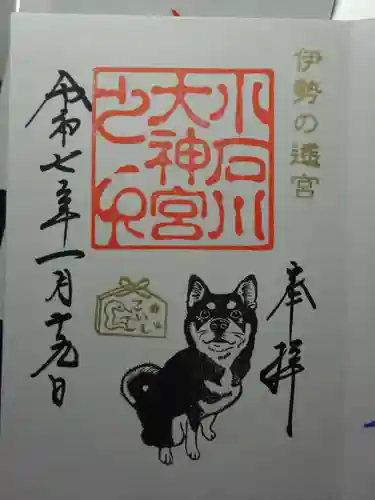 伊勢の遙宮
奉拝
小石川
大神宮
之印
令和七年一月十九日